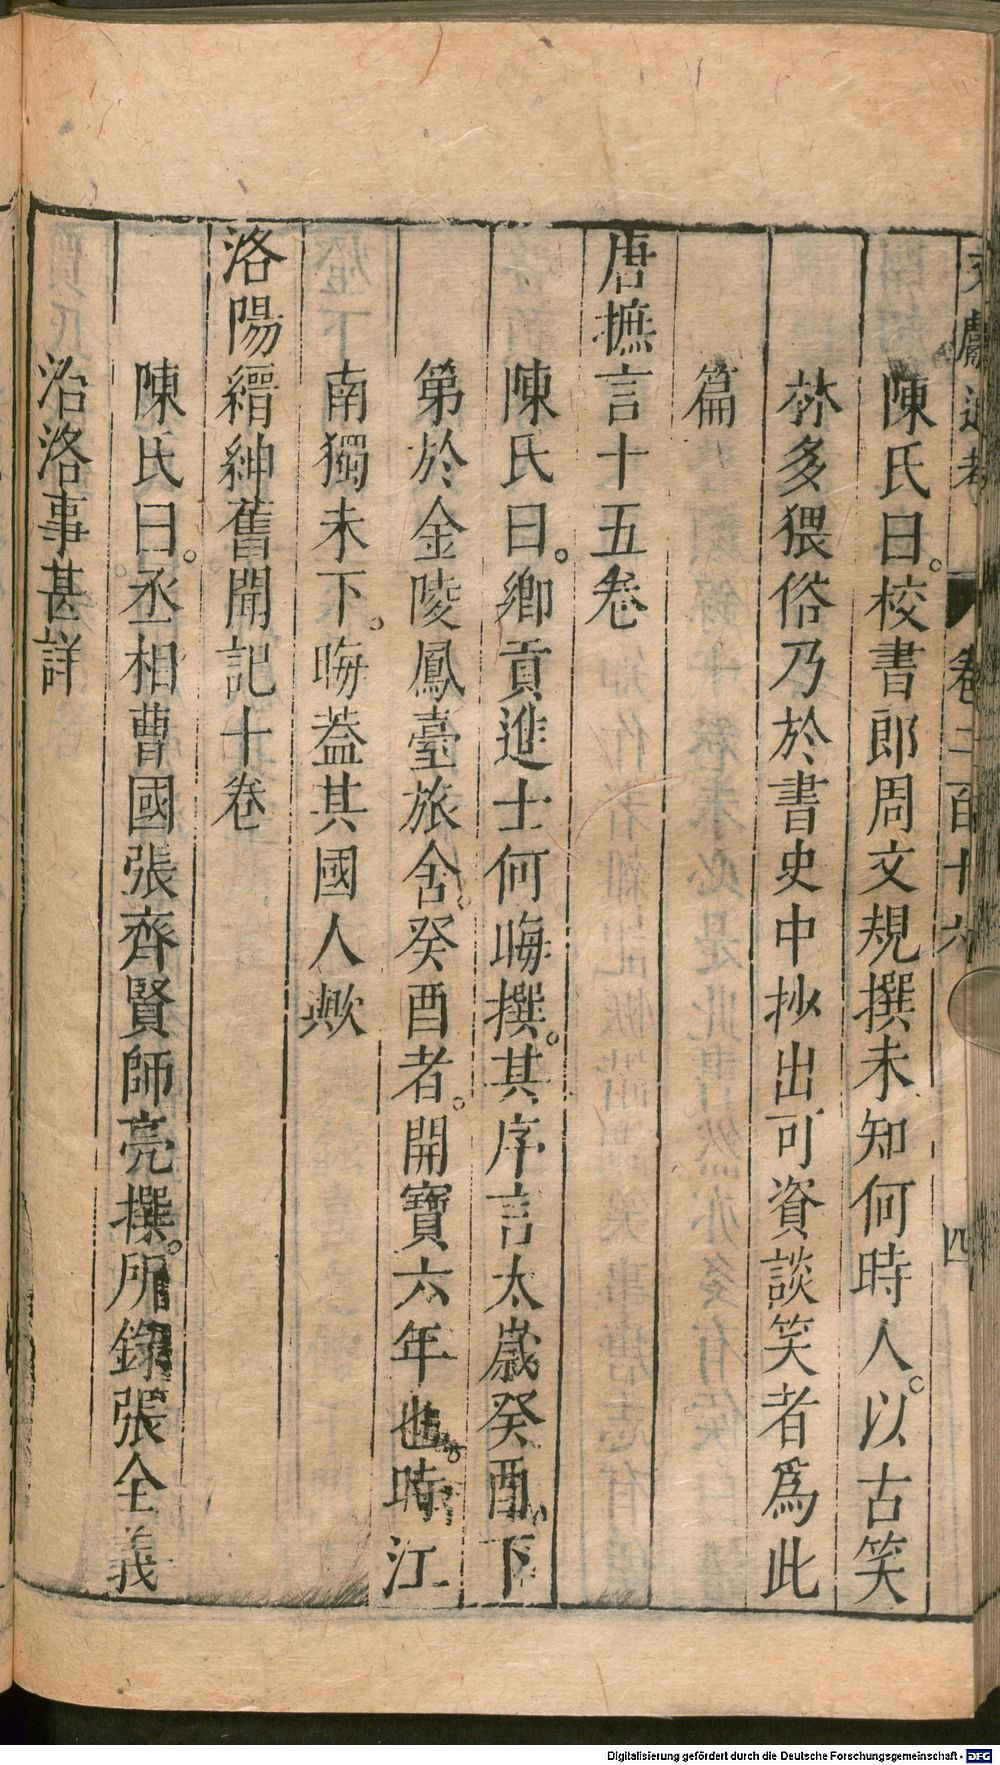 文獻通考 卷二百十六 四
陳氏曰校書郎周文規撰未知何時人以古笑
林多猥俗乃於書史中抄出可資談笑者爲此
篇
唐摭言十五卷
陳氏曰鄉貢進士何晦撰其序言太歲癸酉下
第於金陵鳳臺旅舍癸酉者開寶六年也時江
南獨未下晦蓋其國人歟
洛陽縉紳舊聞記十卷
陳氏曰丞相曹國張齊賢師亮撰所錄張全義
治洛事甚詳
Digitalisierung gefördert durch die Deutsche Forschungsgemeinschaft - DFG